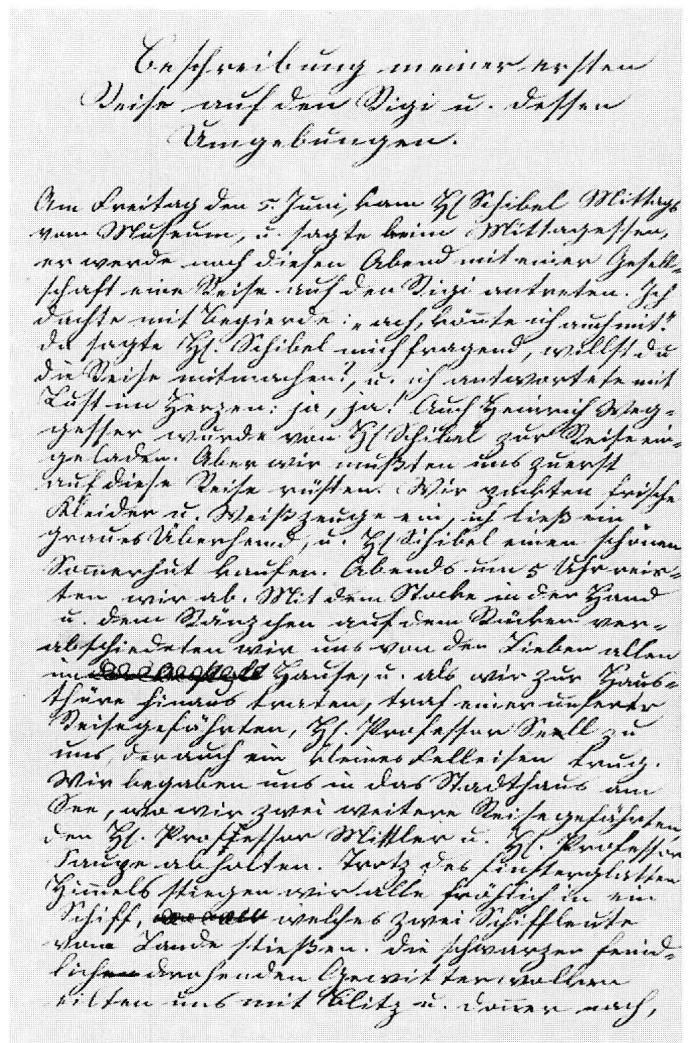 Beschreibung meiner ersten
Reise auf den Rigi u. dessen
Umgebungen.
Am Freitag den 5. Juni, kam H. Schibel Mittags
vom Museum, u. sagte beim Mittagessen,
er werde noch diesen Abend mit einer Gesell-
schaft eine Reise auf den Rigi antreten. Ich
dachte mit Begierde: „ach, könnte ich auch mit!“
da sagte H. Schibel mich fragend, willst du
die Reise mitmachen?, u. ich antwortete mit
Lust im Herzen: ja, ja! Auch Heinrich Weg-
gesser wurde von H. Schibel zur Reise ein-
geladen. Aber wir mußten uns zuerst
auf diese Reise rüsten. Wir packten frische
Kleider u. Weißzeuge ein, ich ließ ein
graues Überhemd, u. H. Schibel einen schönen
Somerhut kaufen. Abends um 5 Uhr reis-
ten wir ab. Mit dem Stocke in der Hand
u. dem Ränzchen auf dem Rücken ver-
abschiedeten wir uns von den Lieben allen
im Hause, u. als wir zur Haus-
thüre hinaus traten, traf einer unserer
Reisegefährten, H. Professor zu
uns, der auch ein kleines Felleisen trug.
Wir begaben uns in das Stadthaus am
See, wo wir zwei weitere Reisegefährten
den H. Professor Mittler u. H. Professor
abholten. Trotz des
Himels stiegen wir alle fröhlich in ein
Schiff, welches zwei Schiffleute
vom Lande stießen. die schwarzen feind-
lich drohenden Gewitterwolken
eilten uns mit Blitz u. Doner nach,